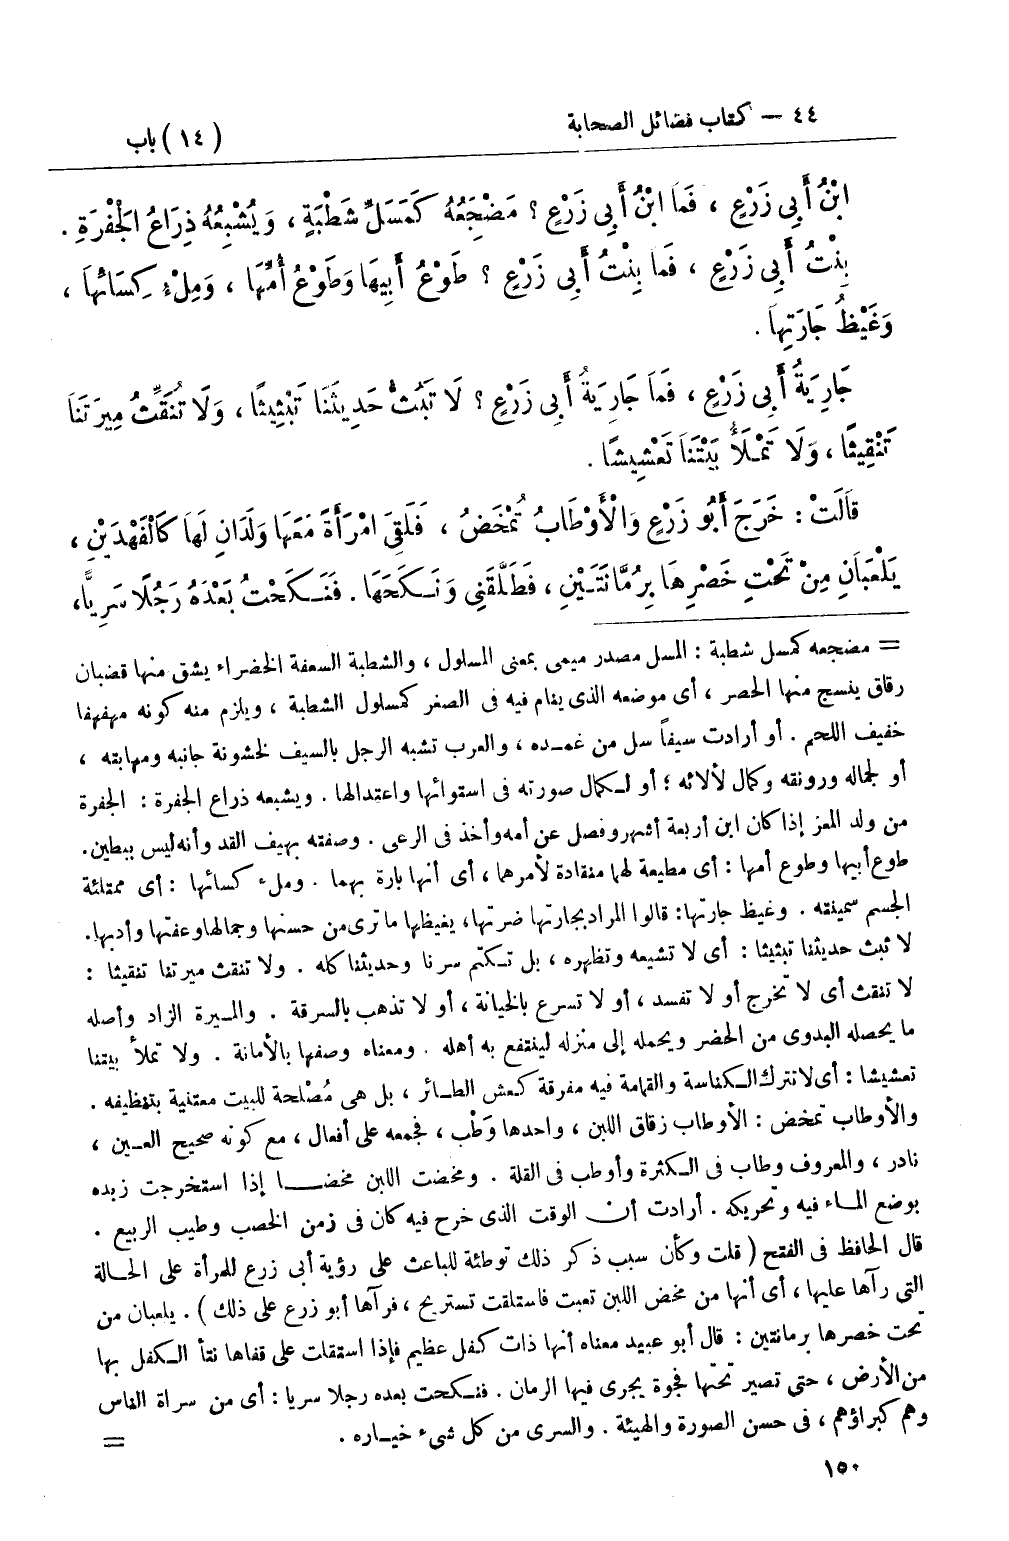 ٤٤ — كتاب فضائل الصحابة
(١٤) باب
ابْنُ أَبِي زَرْعٍ ، فَمَا ابْنُ أَبِي زَرْعٍ ؟ مَضْجَعُهُ كَمَسَلِّ شَطْبَةٍ ، وَيُشْبِعُهُ ذِرَاعُ الْجَفْرَةِ .
بِنْتُ أَبِي زَرْعٍ ، فَمَا بِنْتُ أَبِي زَرْعٍ ؟ طَوْعُ أَبِيهَا وَطَوْعُ أُمِّهَا ، وَمِلْءُ كِسَائِهَا ،
وَغَيْظُ جَارَتِهَا .
جَارِيَةُ أَبِي زَرْعٍ ، فَمَا جَارِيَةُ أَبِي زَرْعٍ ؟ لَا تَبُثُّ حَدِيثَنَا تَبْثِيثًا ، وَلَا تُنَقِّثُ مِيرَتَنَا
تَنْقِيثًا ، وَلَا تَمْلَأُ بَيْتَنَا تَعْشِيشًا .
قَالَتْ : خَرَجَ أَبُو زَرْعٍ وَالْأَوْطَابُ تُمْخَضُ ، فَلَقِيَ امْرَأَةً مَعَهَا وَلَدَانِ لَهَا كَالْفَهْدَيْنِ ،
يَلْعَبَانِ مِنْ تَحْتِ خَصْرِهَا بِرُمَّانَتَيْنِ ، فَطَلَّقَنِي وَنَكَحَهَا . فَنَكَحْتُ بَعْدَهُ رَجُلًا سَرِيًّا ،
= مضجعه كمسل شطبة : المسل مصدر ميمى بمعنى المسلول ، والشطبة السعفة الخضراء يشق منها قضبان
رقاق ينسج منها الحصر ، أى موضعه الذى ينام فيه فى الصغر كمسلول الشطبة ، ويلزم منه كونه مهفهفا
خفيف اللحم . أو أرادت سيفاً سل من غمده ، والعرب تشبه الرجل بالسيف لخشونة جانبه ومهابته ،
أو لجماله ورونقه وكمال لألائه ؛ أو لكمال صورته فى استوائها واعتدالها . ويشبعه ذراع الجفرة : الجفرة
من ولد المعز إذا كان ابن أربعة أشهر وفصل عن أمه وأخذ فى الرعى . وصفته بهيف القد وأنه ليس ببطين .
طوع أبيها وطوع أمها : أى مطيعة لهما منقادة لأمرهما ، أى أنها بارة بهما . وملء كسائها : أى ممتلئة
الجسم سمينته . وغيظ جارتها : قالوا المراد بجارتها ضرتها ، يغيظها ما ترى من حسنها وجمالها وعفتها وأدبها .
لا تبث حديثنا تبثيثا : أى لا تشيعه وتظهره ، بل تكتم سرنا وحديثنا كله . ولا تنقث ميرتنا تنقيثا :
لا تنقث أى لا تخرج أو لا تفسد ، أو لا تسرع بالخيانة ، أو لا تذهب بالسرقة . والميرة الزاد وأصله
ما يحصله البدوى من الحضر ويحمله إلى منزله لينتفع به أهله . ومعناه وصفها بالأمانة . ولا تملأ بيتنا
تعشيشا : أى لا تترك الكناسة والقمامة فيه مفرقة كعش الطائر ، بل هى مُصْلحة للبيت معتنية بتنظيفه .
والأوطاب تمخض : الأوطاب زقاق اللبن ، واحدها وَطْب ، فجمعه على أفعال ، مع كونه صحيح العين ،
نادر ، والمعروف وطاب فى الكثرة وأوطب فى القلة . ومخضت اللبن مخضا إذا استخرجت زبده
بوضع الماء فيه وتحريكه . أرادت أن الوقت الذى خرج فيه كان فى زمن الخصب وطيب الربيع .
قال الحافظ فى الفتح ( قلت وكأن سبب ذكر ذلك توطئة للباعث على رؤية أبى زرع للمرأة على الحالة
التى رآها عليها ، أى أنها من مخض اللبن تعبت فاستلقت تستريح ، فرآها أبو زرع على ذلك ) . يلعبان من
تحت خصرها برمانتين : قال أبو عبيد معناه أنها ذات كفل عظيم فإذا استلقت على قفاها نتأ الكفل بها
من الأرض ، حتى تصير تحتها فجوة يجرى فيها الرمان . فنكحت بعده رجلا سريا : أى من سراة الناس
وهم كبراؤهم ، فى حسن الصورة والهيئة . والسرى من كل شىء خياره .
=
١٥٠